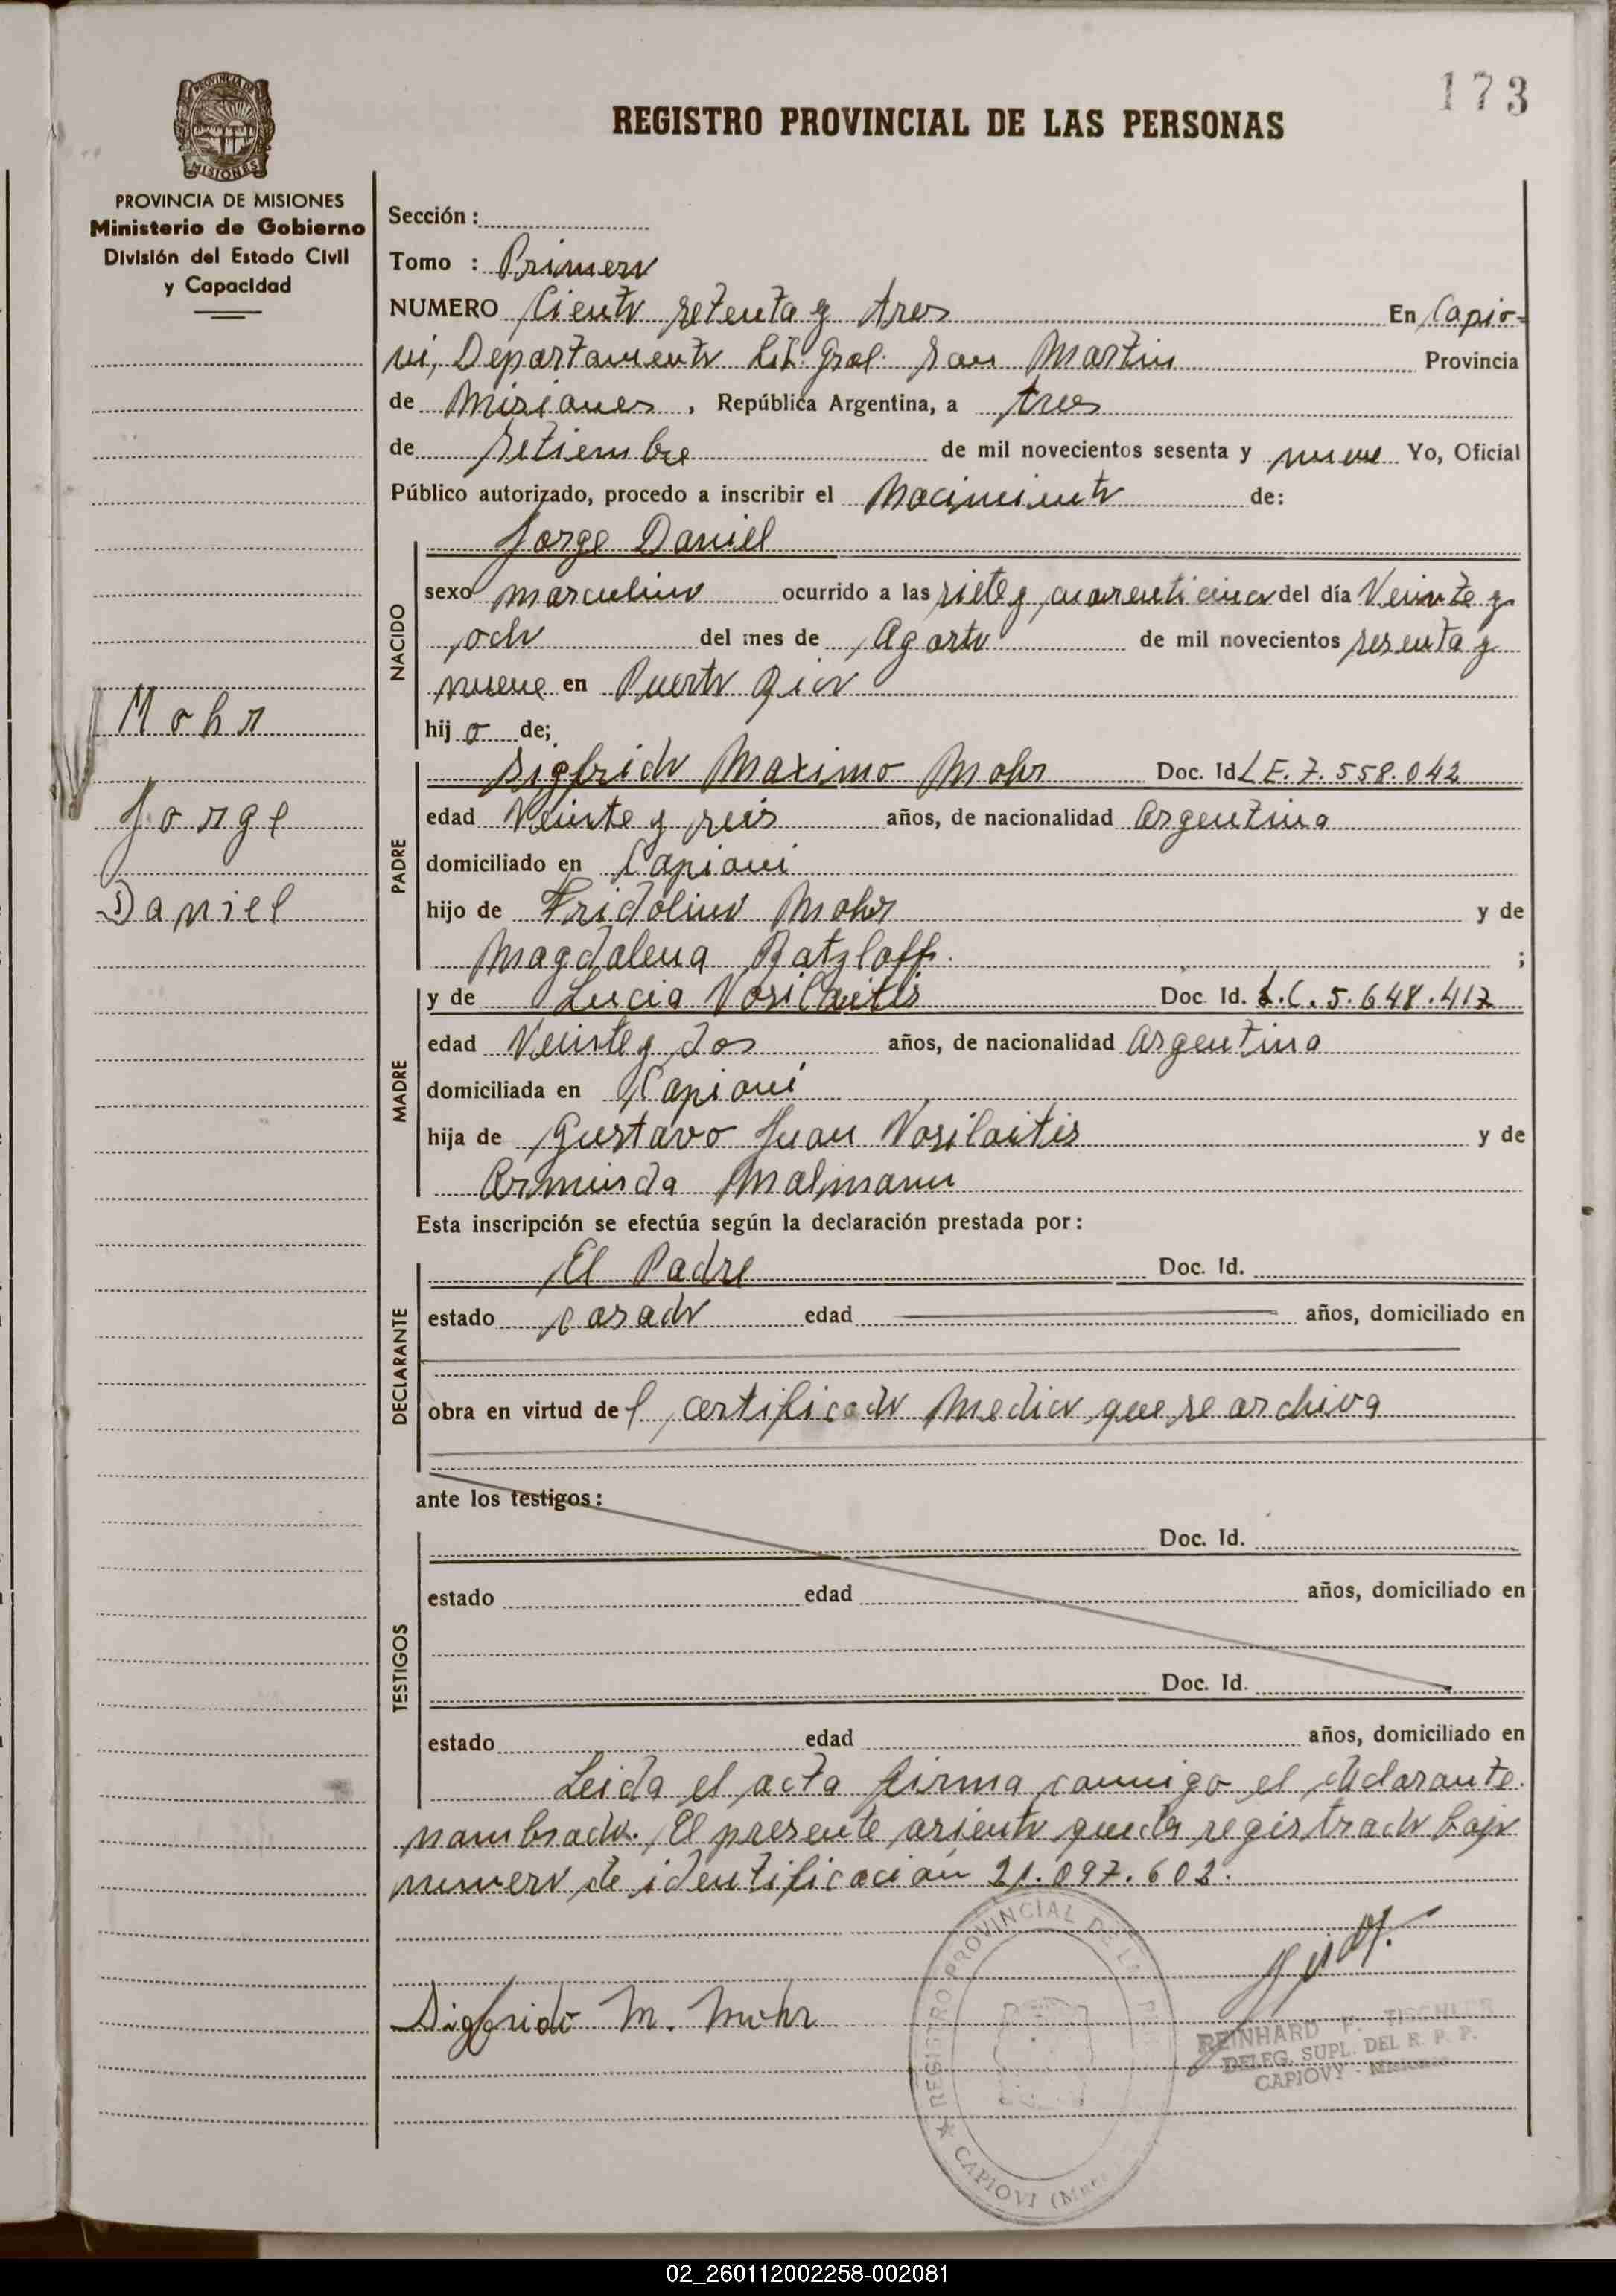 173
REGISTRO PROVINCIAL DE LAS PERSONAS
PROVINCIA DE
MISIONES
PROVINCIA DE MISIONES
Ministerio de Gobierno
División del Estado Civil
y Capacidad
Mohr
Jorge
Daniel
Sección :
Tomo : Primero
NUMERO Ciento setenta y tres En Capio-
vi, Departamento Lib. Gral. San Martin Provincia
de Misiones , República Argentina, a tres
de setiembre de mil novecientos sesenta y nueve Yo, Oficial
Público autorizado, procedo a inscribir el Nacimiento de:
NACIDO
Jorge Daniel
sexo masculino ocurrido a las siete y cuarenticinco del día Veinte y
ocho del mes de Agosto de mil novecientos sesenta y
nueve en Puerto Rico
hij o de;
PADRE
Sigfrido Maximo Mohr Doc. Id L.E. 7.558.042
edad Veinte y seis años, de nacionalidad Argentina
domiciliado en Capiovi
hijo de Fridolino Mohr y de
Magdalena Ratzlaff. ;
MADRE
y de Lucia Vosilaitis Doc. Id. L.C. 5.648.417
edad Veinte y dos años, de nacionalidad Argentina
domiciliada en Capiovi
hija de Gustavo Juan Vosilaitis y de
Arminda Malmann
Esta inscripción se efectúa según la declaración prestada por :
DECLARANTE
El Padre Doc. Id.
estado casado edad años, domiciliado en
obra en virtud de l certificado Medico que se archiva
ante los testigos :
TESTIGOS
Doc. Id.
estado edad años, domiciliado en
Doc. Id.
estado edad años, domiciliado en
Leida el acta firma conmigo el declarante
nombrado. El presente asiento queda registrado bajo
numero de identificación 21.097.602.
Sigfrido M. Mohr
★ REGISTRO PROVINCIAL DE LAS
CAPIOVI
REINHARD F. TISCHLER
DELEG. SUPL. DEL R. P. P.
CAPIOVY - Misiones
02_260112002258-002081